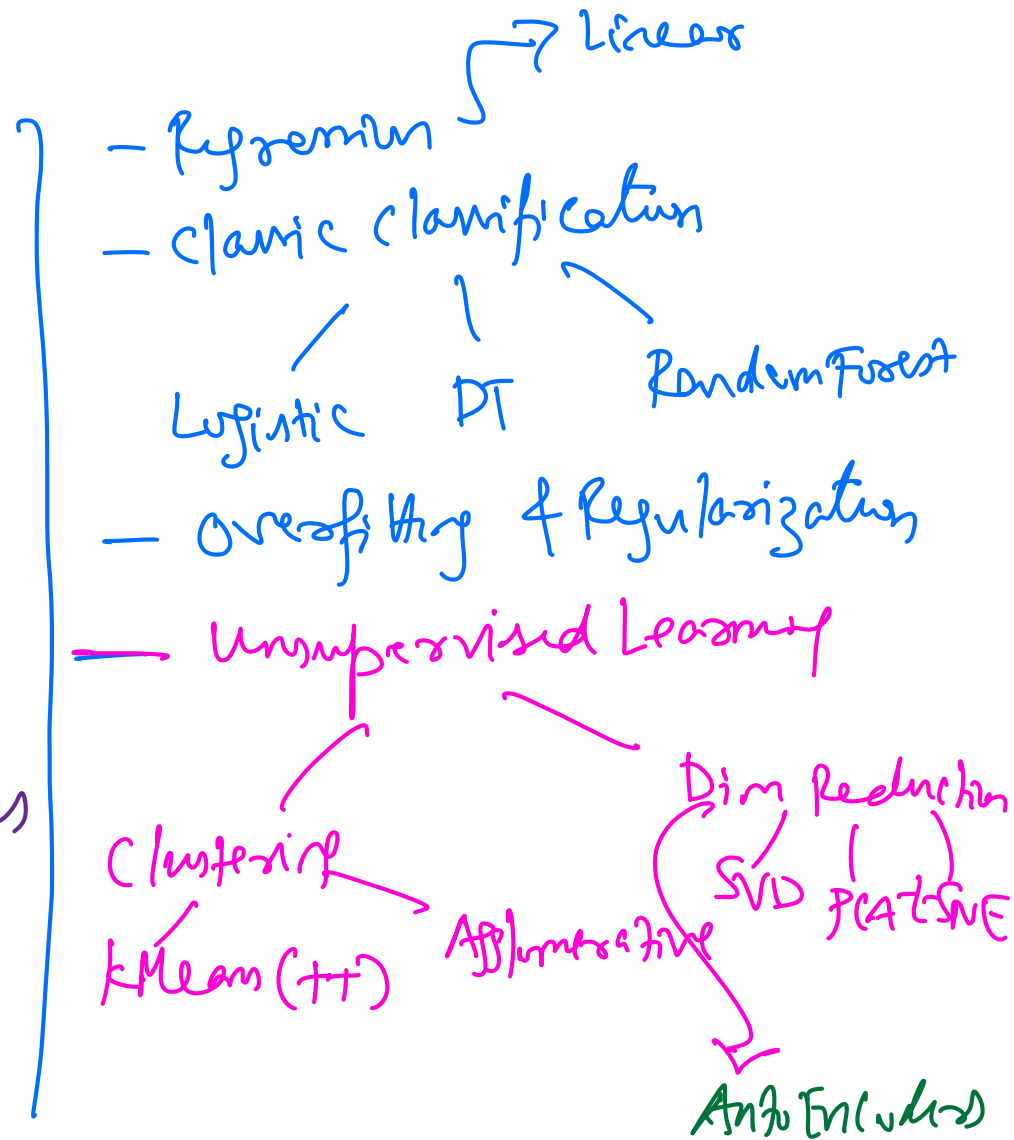 Linear
- Regression
- Classic Classification
Logistic DT Random Forest
- Overfitting & Regularization
- Unsupervised Learning
Dim Reduction
Clustering SVD PCA TSNE
KMean (++) Agglumerative
AutoEncoders